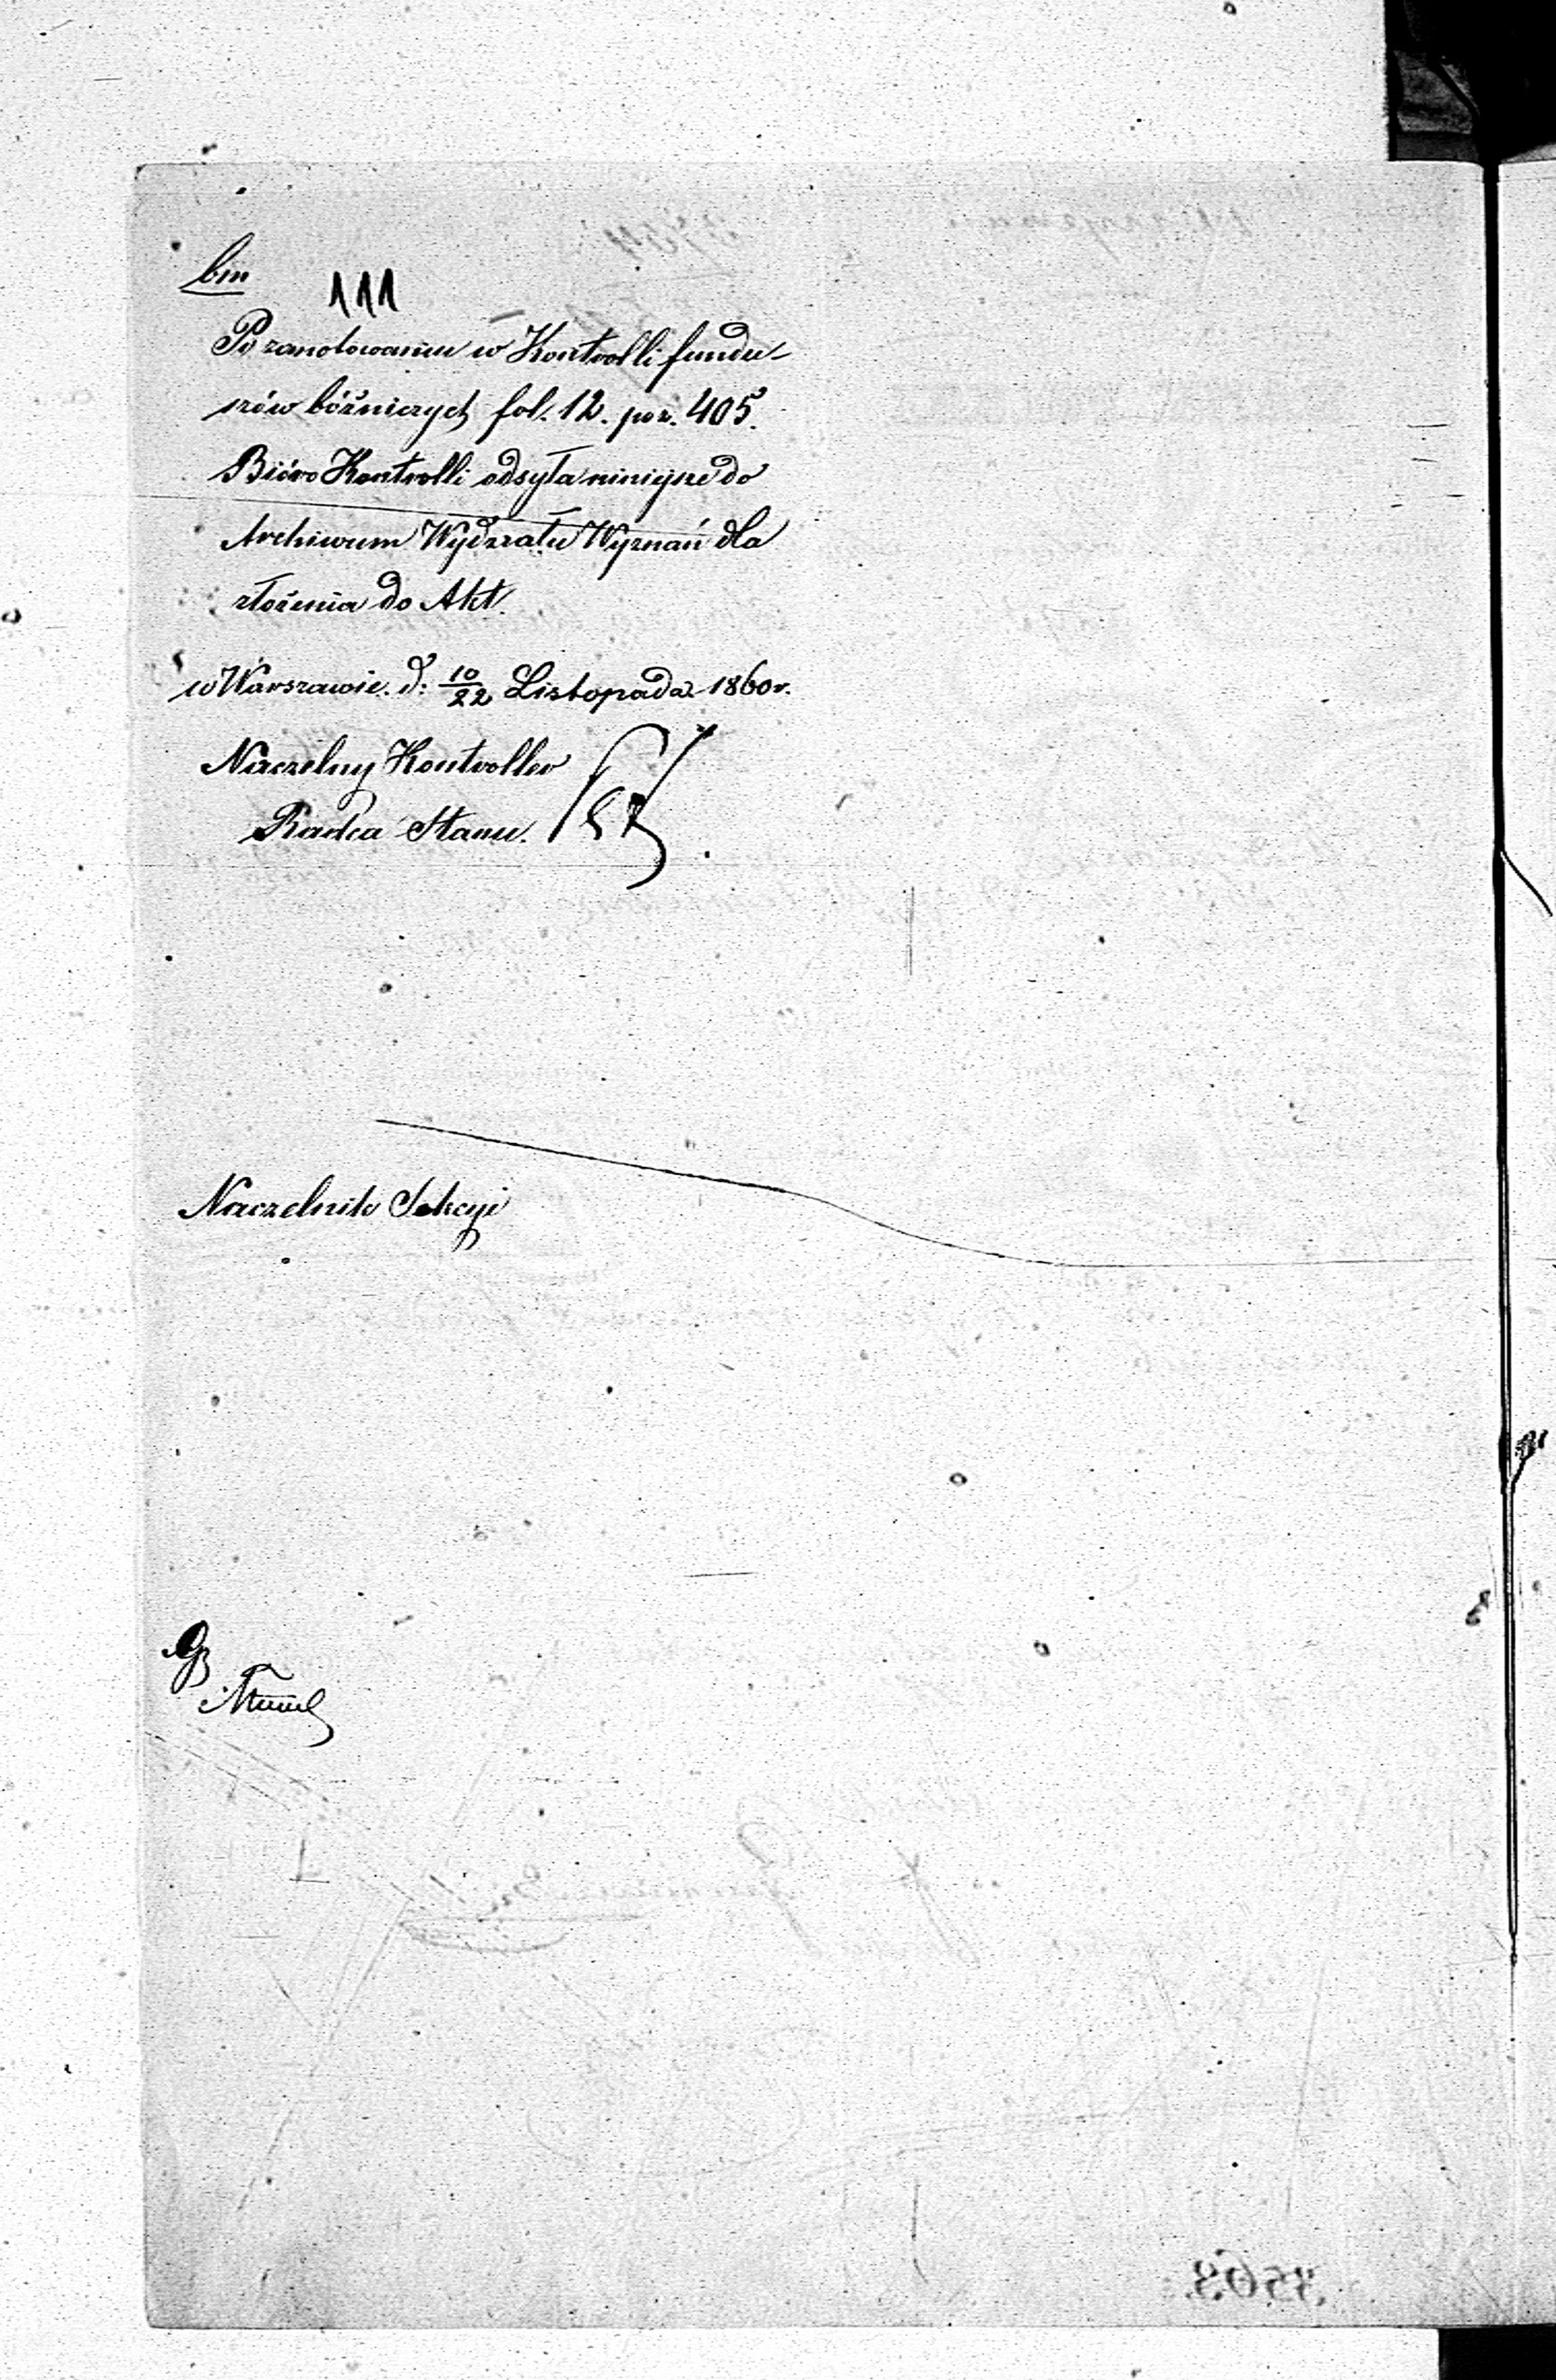 bm
111
Po zanotowaniu w Kontrolli fundu-
szów bóżniczych fol. 12. poz. 405.
Bióro Kontrolli odsyła niniejsze do
Archiwum Wydziału Wyznań dla
złożenia do Akt.
w Warszawie. d: 10/22 Listopada 1860 r.
Naczelny Kontroller
Radca Stanu.
Naczelnik Sekcyi